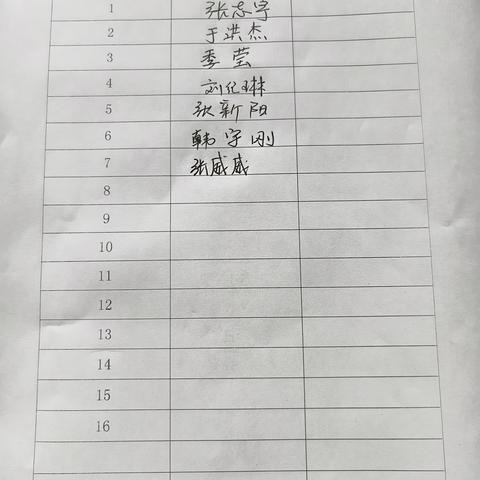 1 张志宇
2 于洪杰
3 季莹
4 刘纪琳
5 张新阳
6 韩宇刚
7 张威威
8
9
10
11
12
13
14
15
16